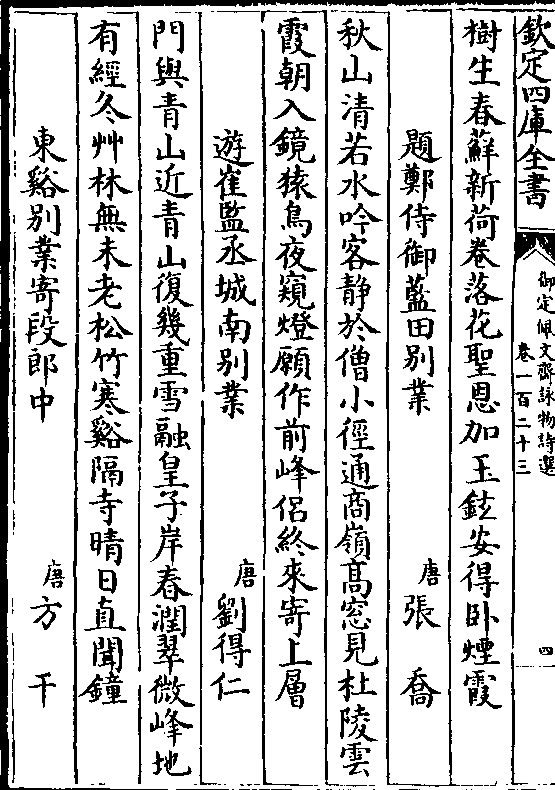 欽定四庫全書
御定佩文齋詠物詩選
卷一百二十三
四
樹生春蘚新荷卷落花聖恩加玉鉉安得卧煙霞
題鄭侍御藍田別業
唐張喬
秋山清若水吟客静於僧小徑通商嶺髙窓見杜陵雲
霞朝入鏡猿鳥夜窺燈願作前峰侶終來寄上層
遊崔監丞城南別業
唐劉得仁
門與青山近青山復幾重雪融皇子岸春潤翠微峰地
有經冬艸林無未老松竹寒谿隔寺晴日直聞鐘
東谿別業寄段郎中
唐方干